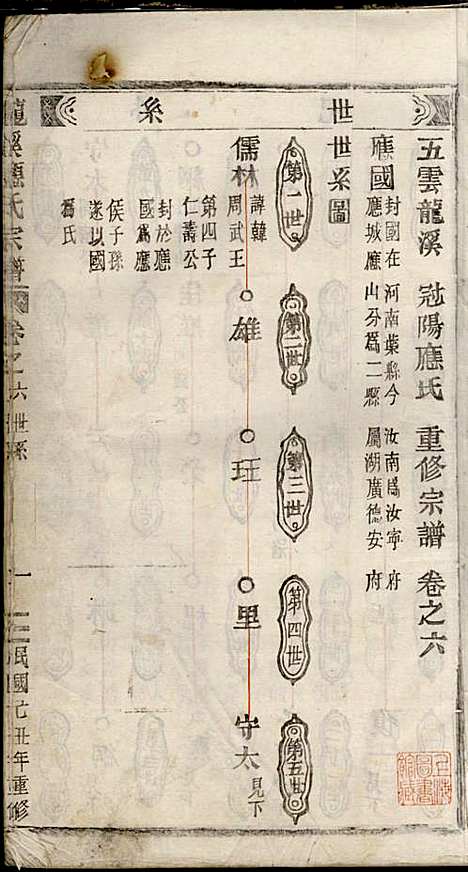 世系
五雲龍溪 冠陽應氏 重修宗譜 卷之六
應國 封國在河南葉縣今汝南為汝寧府
應城應山分為二縣屬湖廣德安府
世系圖
第一世
第二世
第三世
第四世
第五世
儒林
諱韓
周武王
第四子
仁壽公
封於應
國為應
侯子孫
遂以國
爲氏
雄
玨
里
守太 見下
龍溪應氏宗譜
卷之六世系
一
民國乙丑年重修
上海圖書館藏